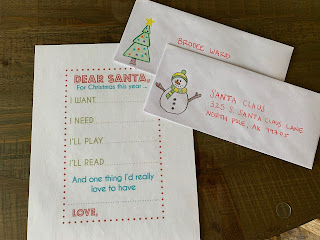 DEAR SANTA,
For Christmas this year ...
I WANT
I NEED
I'LL PLAY
I'LL READ
And one thing I'd really
love to have
LOVE,
BRODEE WARD
SANTA CLAUS
325 S. SANTA CLAUS LANE
NORTH POLE, AK 99705